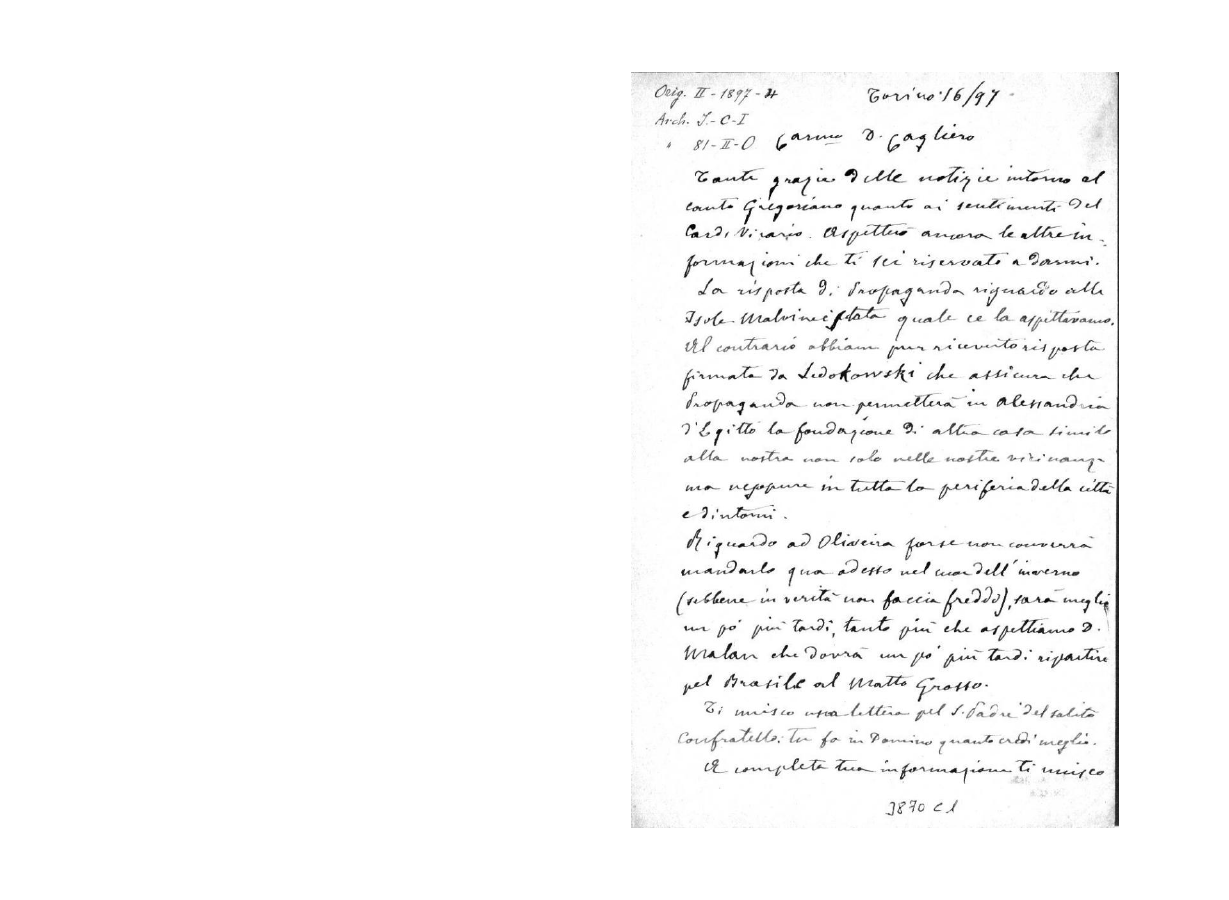 Orig. II - 1897 - 24
Torino 16/97
Arch. S. - C - I
" 81 - II - O
Carmo D. Cagliero
Tante grazie delle notizie intorno al
canto Gregoriano quanto ai sentimenti del
Card. Vicario. Aspetterò ancora le altre in-
formazioni che ti sei riservato a darmi.
La risposta di Propaganda riguardo alle
Isole Malvine è stata quale ce la aspettavamo.
Al contrario abbiam pur ricevuto risposta
firmata da Ledokowski che assicura che
Propaganda non permetterà in Alessandria
d'Egitto la fondazione di altra casa simile
alla nostra non solo nelle nostre vicinanz
ma neppure in tutta la periferia della città
e dintorni.
Riguardo ad Oliveira forse non converrà
mandarlo qua adesso nel cuor dell'inverno
(sebbene in verità non faccia freddo), sarà meglio
un po' più tardi, tanto più che aspettiamo D.
Malan che dovrà un po' più tardi ripartire
pel Brasile al Matto Grosso.
Ti unisco una lettera pel S. Padre del solito
Confratello: tu fa in Domino quanto credi meglio.
A completa tua informazione ti unisco
3870 C1